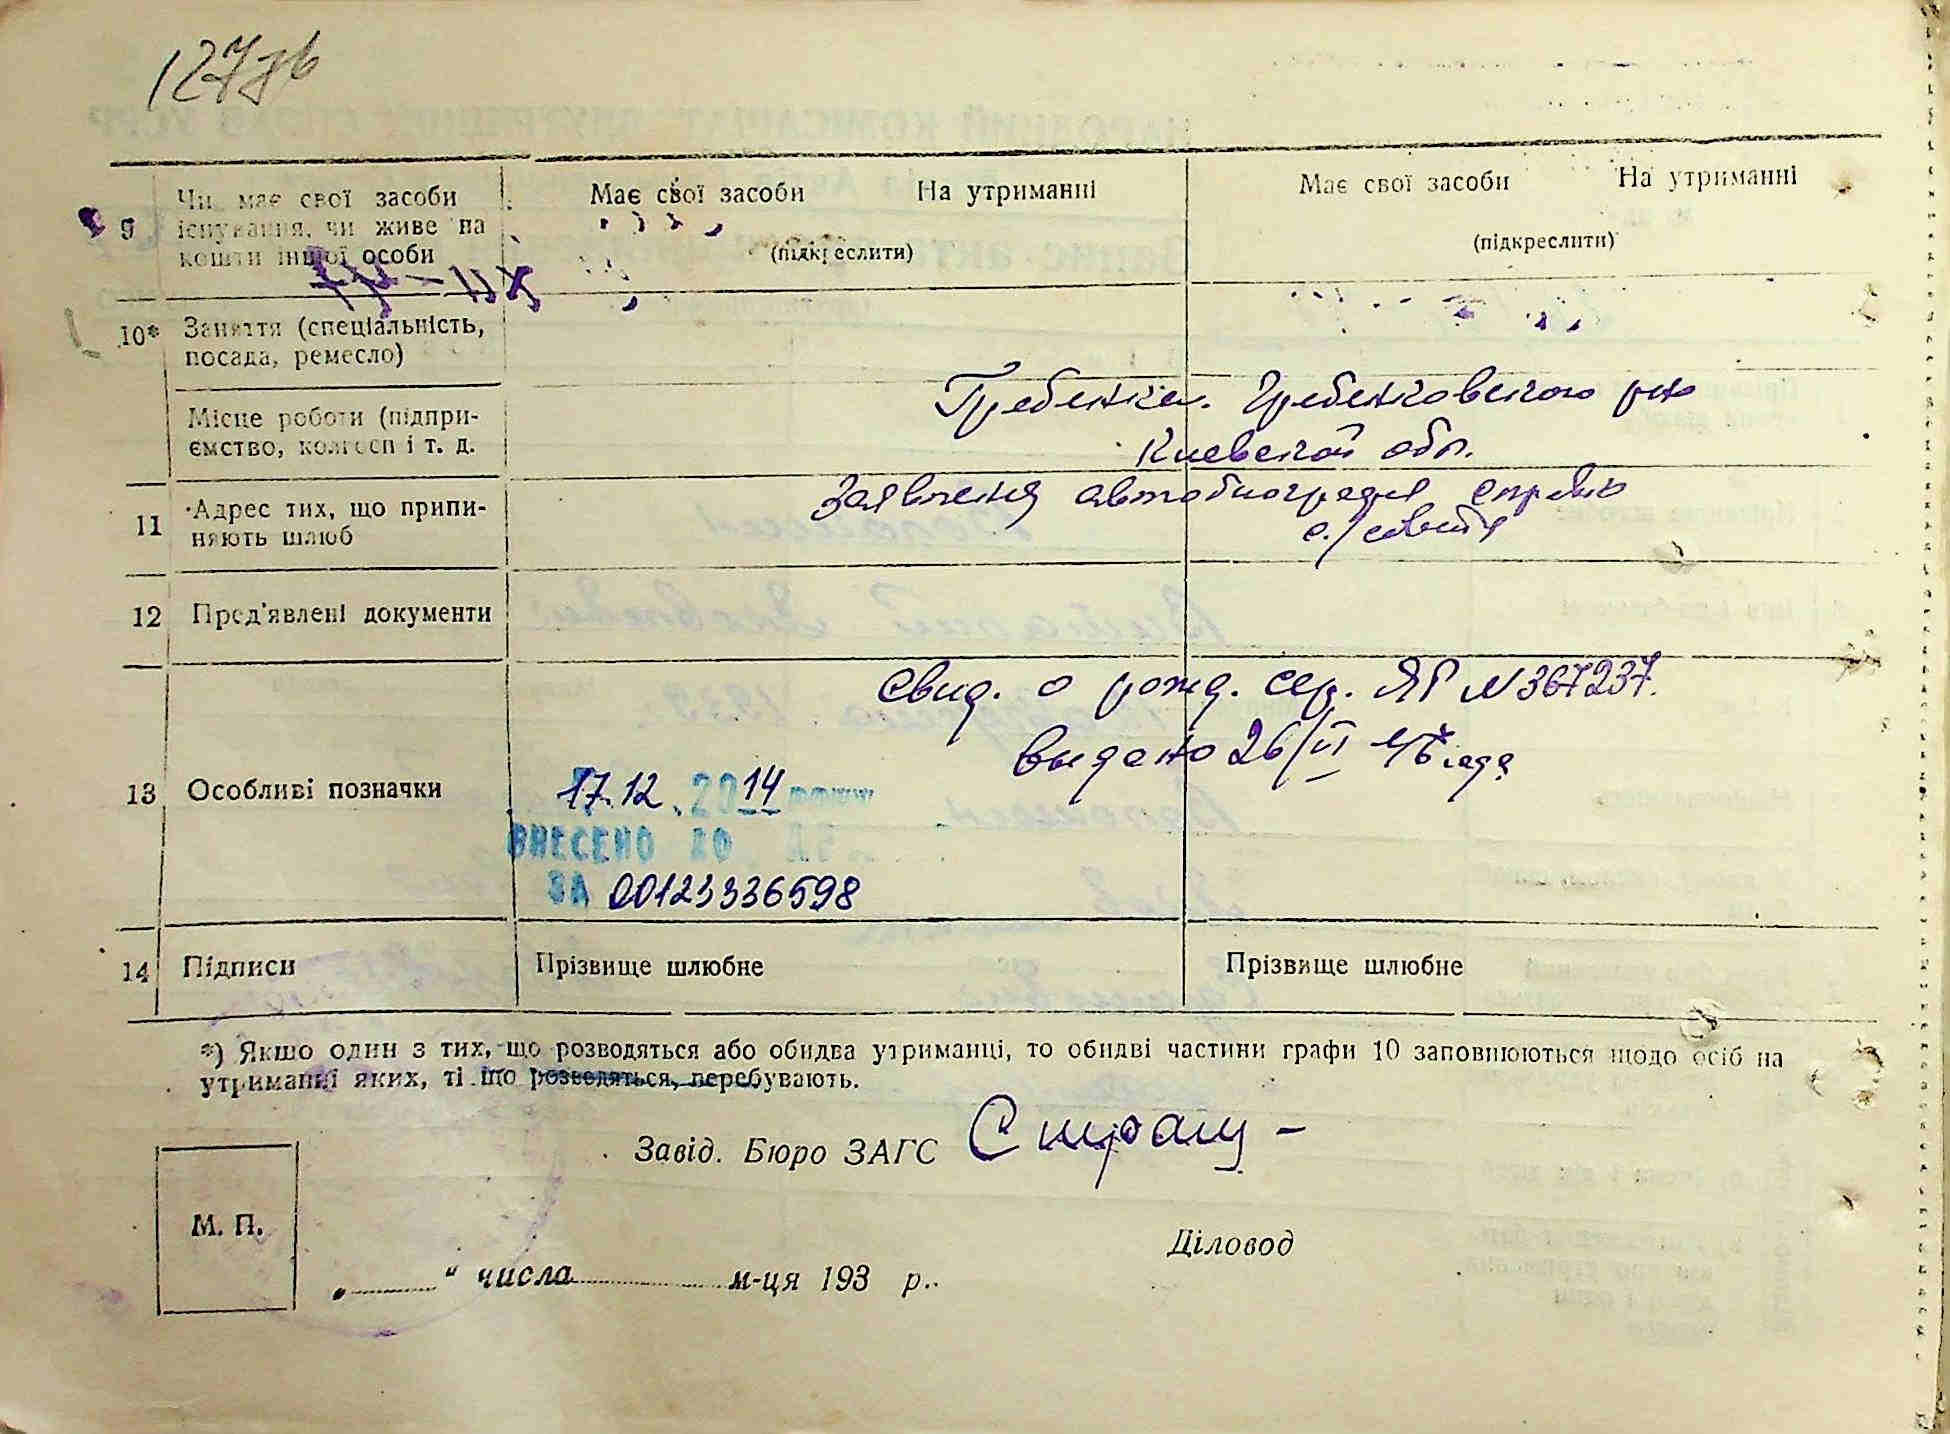 9 Чи має свої засоби існування, чи живе на кошти іншої особи
Має свої засоби На утриманні
(підкреслити)
Має свої засоби На утриманні
(підкреслити)
10* Заняття (спеціальність, посада, ремесло)
Місце роботи (підприємство, колгосп і т. д.
Гребенки. Гребенковского р-на
Киевской обл.
11 Адрес тих, що припиняють шлюб
Заявления автобиография справка
с/совета
12 Пред'явлені документи
Свид. о рожд. сер. ЯР N 367237.
выдано 26/VI 46 года
13 Особливі позначки
17.12.2014
ВНЕСЕНО ДО
ЗА 00123336598
14 Підписи
Прізвище шлюбне
Прізвище шлюбне
*) Якшо один з тих, що розводяться або обидва утриманці, то обидві частини графи 10 заповнюються щодо осіб на
утриманні яких, ті що розводяться, перебувають.
Завід. Бюро ЗАГС
Діловод
М. П.
„ “ числа м-ця 193 р.